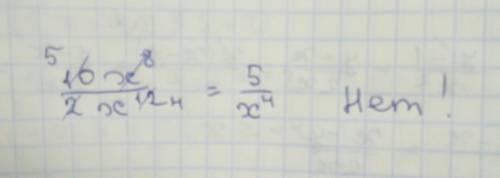 5
16 x^8 / 2 x^12 4 = 5 / x^4 Нет!